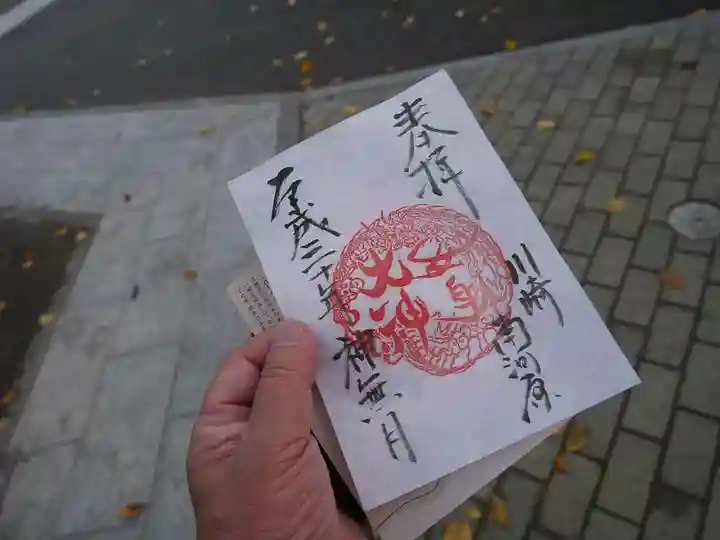 奉拝
川崎 南河原
女
大神
平成三十年 神無月